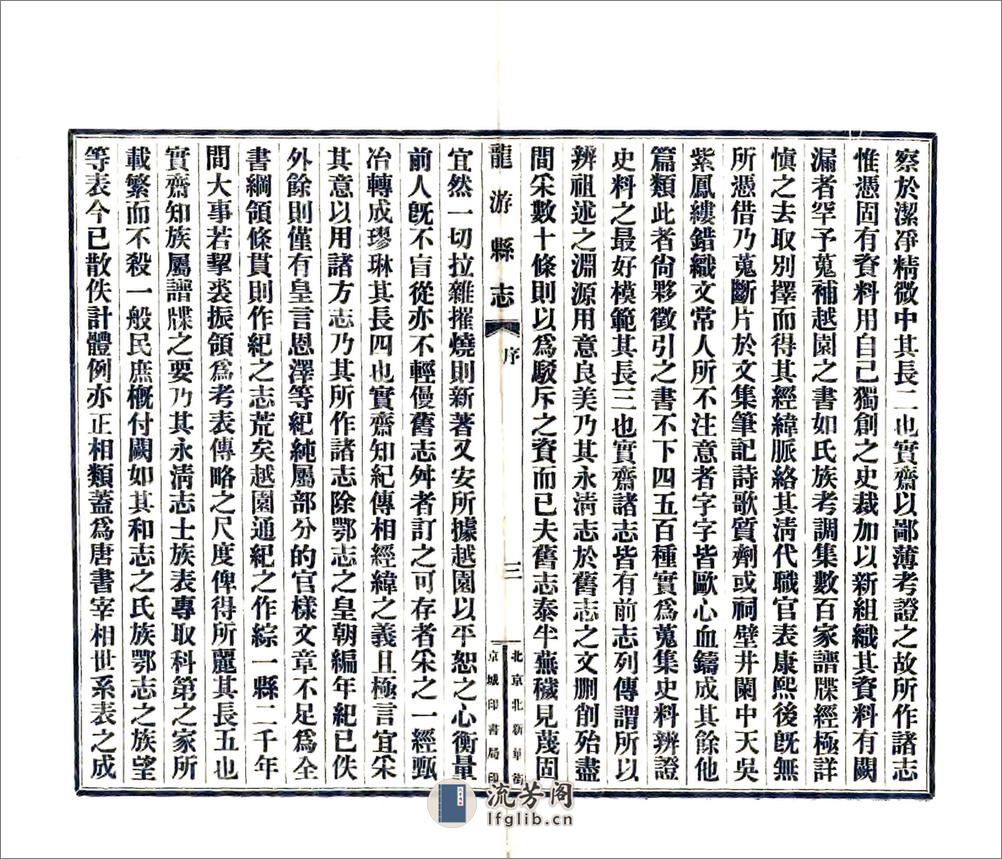 察於潔凈精微中其長二也實齋以鄙薄考證之故所作諸志
惟憑固有資料用自己獨創之史裁加以新組織其資料有闕
漏者罕予蒐補越園之書如氏族考調集數百家譜牒經極詳
愼之去取別擇而得其經緯脈絡其淸代職官表康熙後旣無
所憑借乃蒐斷片於文集筆記詩歌質劑或祠壁井闌中天吳
紫鳳縷錯織文常人所不注意者字字皆歐心血鑄成其餘他
篇類此者尙夥徵引之書不下四五百種實爲蒐集史料辨證
史料之最好模範其長三也實齋諸志皆有前志列傳謂所以
辨祖述之淵源用意良美乃其永淸志於舊志之文刪削殆盡
間采數十條則以爲駁斥之資而已夫舊志泰半蕪穢見蔑固
龍游縣志 序 三 北京北新華街
京城印書局印
宜然一切拉雜摧燒則新著又安所據越園以平恕之心衡量
前人旣不盲從亦不輕慢舊志舛者訂之可存者采之一經甄
冶轉成璆琳其長四也實齋知紀傳相經緯之義且極言宜采
其意以用諸方志乃其所作諸志除鄂志之皇朝編年紀已佚
外餘則僅有皇言恩澤等紀純屬部分的官樣文章不足爲全
書綱領條貫則作紀之志荒矣越園通紀之作綜一縣二千年
間大事若挈裘振領爲考表傳略之尺度俾得所麗其長五也
實齋知族屬譜牒之要乃其永淸志士族表專取科第之家所
載繁而不殺一般民庶槪付闕如其和志之氏族鄂志之族望
等表今已散佚計體例亦正相類蓋爲唐書宰相世系表之成
流芳阁
lfglib.cn